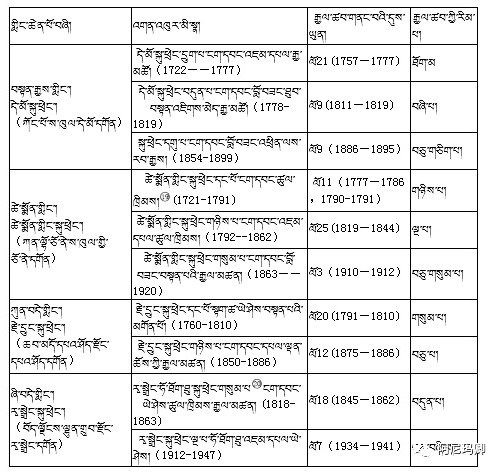 གླིང་ཆེན་པོ་བཞི།
འགན་འཁུར་མི་སྣ།
རྒྱལ་ཚབ་གནང་བའི་དུས་
ཡུན།
རྒྱལ་ཚབ་ཀྱི་རིམ་
པ།
བསྟན་རྒྱས་གླིང་།
དེ་མོ་སྐུ་ཕྲེང་།
(ཀོང་པོ་ས་ཁུལ་དེ་མོ་དགོན)
དེ་མོ་སྐུ་ཕྲེང་དྲུག་པ་ངག་དབང་འཇམ་དཔལ་རྒྱ་
མཚོ། (1722——1777)
ལོ21 (1757—1777)
ཐོག་མ
དེ་མོ་སྐུ་ཕྲེང་བདུན་པ་ངག་དབང་བློ་བཟང་ཐུབ་
བསྟན་འཇིགས་མེད་རྒྱ་མཚོ། (1778-
1819)
ལོ9 (1811—1819)
བཞི་པ།
སྐུ་ཕྲེང་དགུ་པ་ངག་དབང་བློ་བཟང་འཕྲིན་ལས་
རབ་རྒྱས། (1854-1899)
ལོ9 (1886—1895)
བཅུ་གཅིག་པ།
ཚེ་སྨོན་གླིང་།
ཚེ་སྨོན་གླིང་སྐུ་ཕྲེང་།
(ཀན་ལྷོ་ཅོ་ནེ་ས་ཁུལ་གྱི་
ཅོ་ནེ་དགོན)
ཚེ་སྨོན་གླིང་སྐུ་ཕྲེང་དང་པོ་ངག་དབང་ཚུལ་
ཁྲིམས། (1721-1791)
ལོ11 (1777—1786
, 1790-1791)
གཉིས་པ།
ཚེ་སྨོན་གླིང་སྐུ་ཕྲེང་གཉིས་པ་ངག་དབང་འཇམ་
དཔལ་ཚུལ་ཁྲིམས། (1792--1862)
ལོ25 (1819—1844)
ལྔ་པ།
ཚེ་སྨོན་གླིང་སྐུ་ཕྲེང་གསུམ་པ་ངག་དབང་བློ་
བཟང་བསྟན་པའི་རྒྱལ་མཚན། (1863——
1920)
ལོ3 (1910—1912)
བཅུ་གསུམ་པ།
ཀུན་བདེ་གླིང་།
རྗེ་དྲུང་སྐུ་ཕྲེང་།
(ཆབ་མདོ་དཔའ་ཤོད་རྫོང་
དཔའ་ཤོད་དགོན)
རྗེ་དྲུང་སྐུ་ཕྲེང་དང་པོ་སྟག་ཚ་ཡེ་ཤེས་བསྟན་པའི་
མགོན་པོ། (1760-1810)
ལོ20 (1791—1810)
གསུམ་པ།
རྗེ་དྲུང་སྐུ་ཕྲེང་གཉིས་པ་ངག་དབང་དཔལ་ལྡན་
ཆོས་ཀྱི་རྒྱལ་མཚན། (1850-1886)
ལོ12 (1875—1886)
བཅུ་པ།
ཞི་བདེ་གླིང་།
རྭ་སྒྲེང་སྐུ་ཕྲེང་།
(བོད་ལྗོངས་ལྷུན་གྲུབ་རྫོང་
རྭ་སྒྲེང་དགོན)
རྭ་སྒྲེང་ཧོ་ཐོག་ཐུ་སྐུ་ཕྲེང་གསུམ་པ་ངག་དབང་
ཡེ་ཤེས་ཚུལ་ཁྲིམས་རྒྱལ་མཚན། (1818-
1863)
ལོ18 (1845—1862)
བདུན་པ།
རྭ་སྒྲེང་སྐུ་ཕྲེང་ལྔ་པ་ཧོ་ཐོག་ཐུ་འཇམ་དཔལ་ཡེ་
ཤེས། (1912-1947)
ལོ7 (1934—1941)
阿尼玛卿